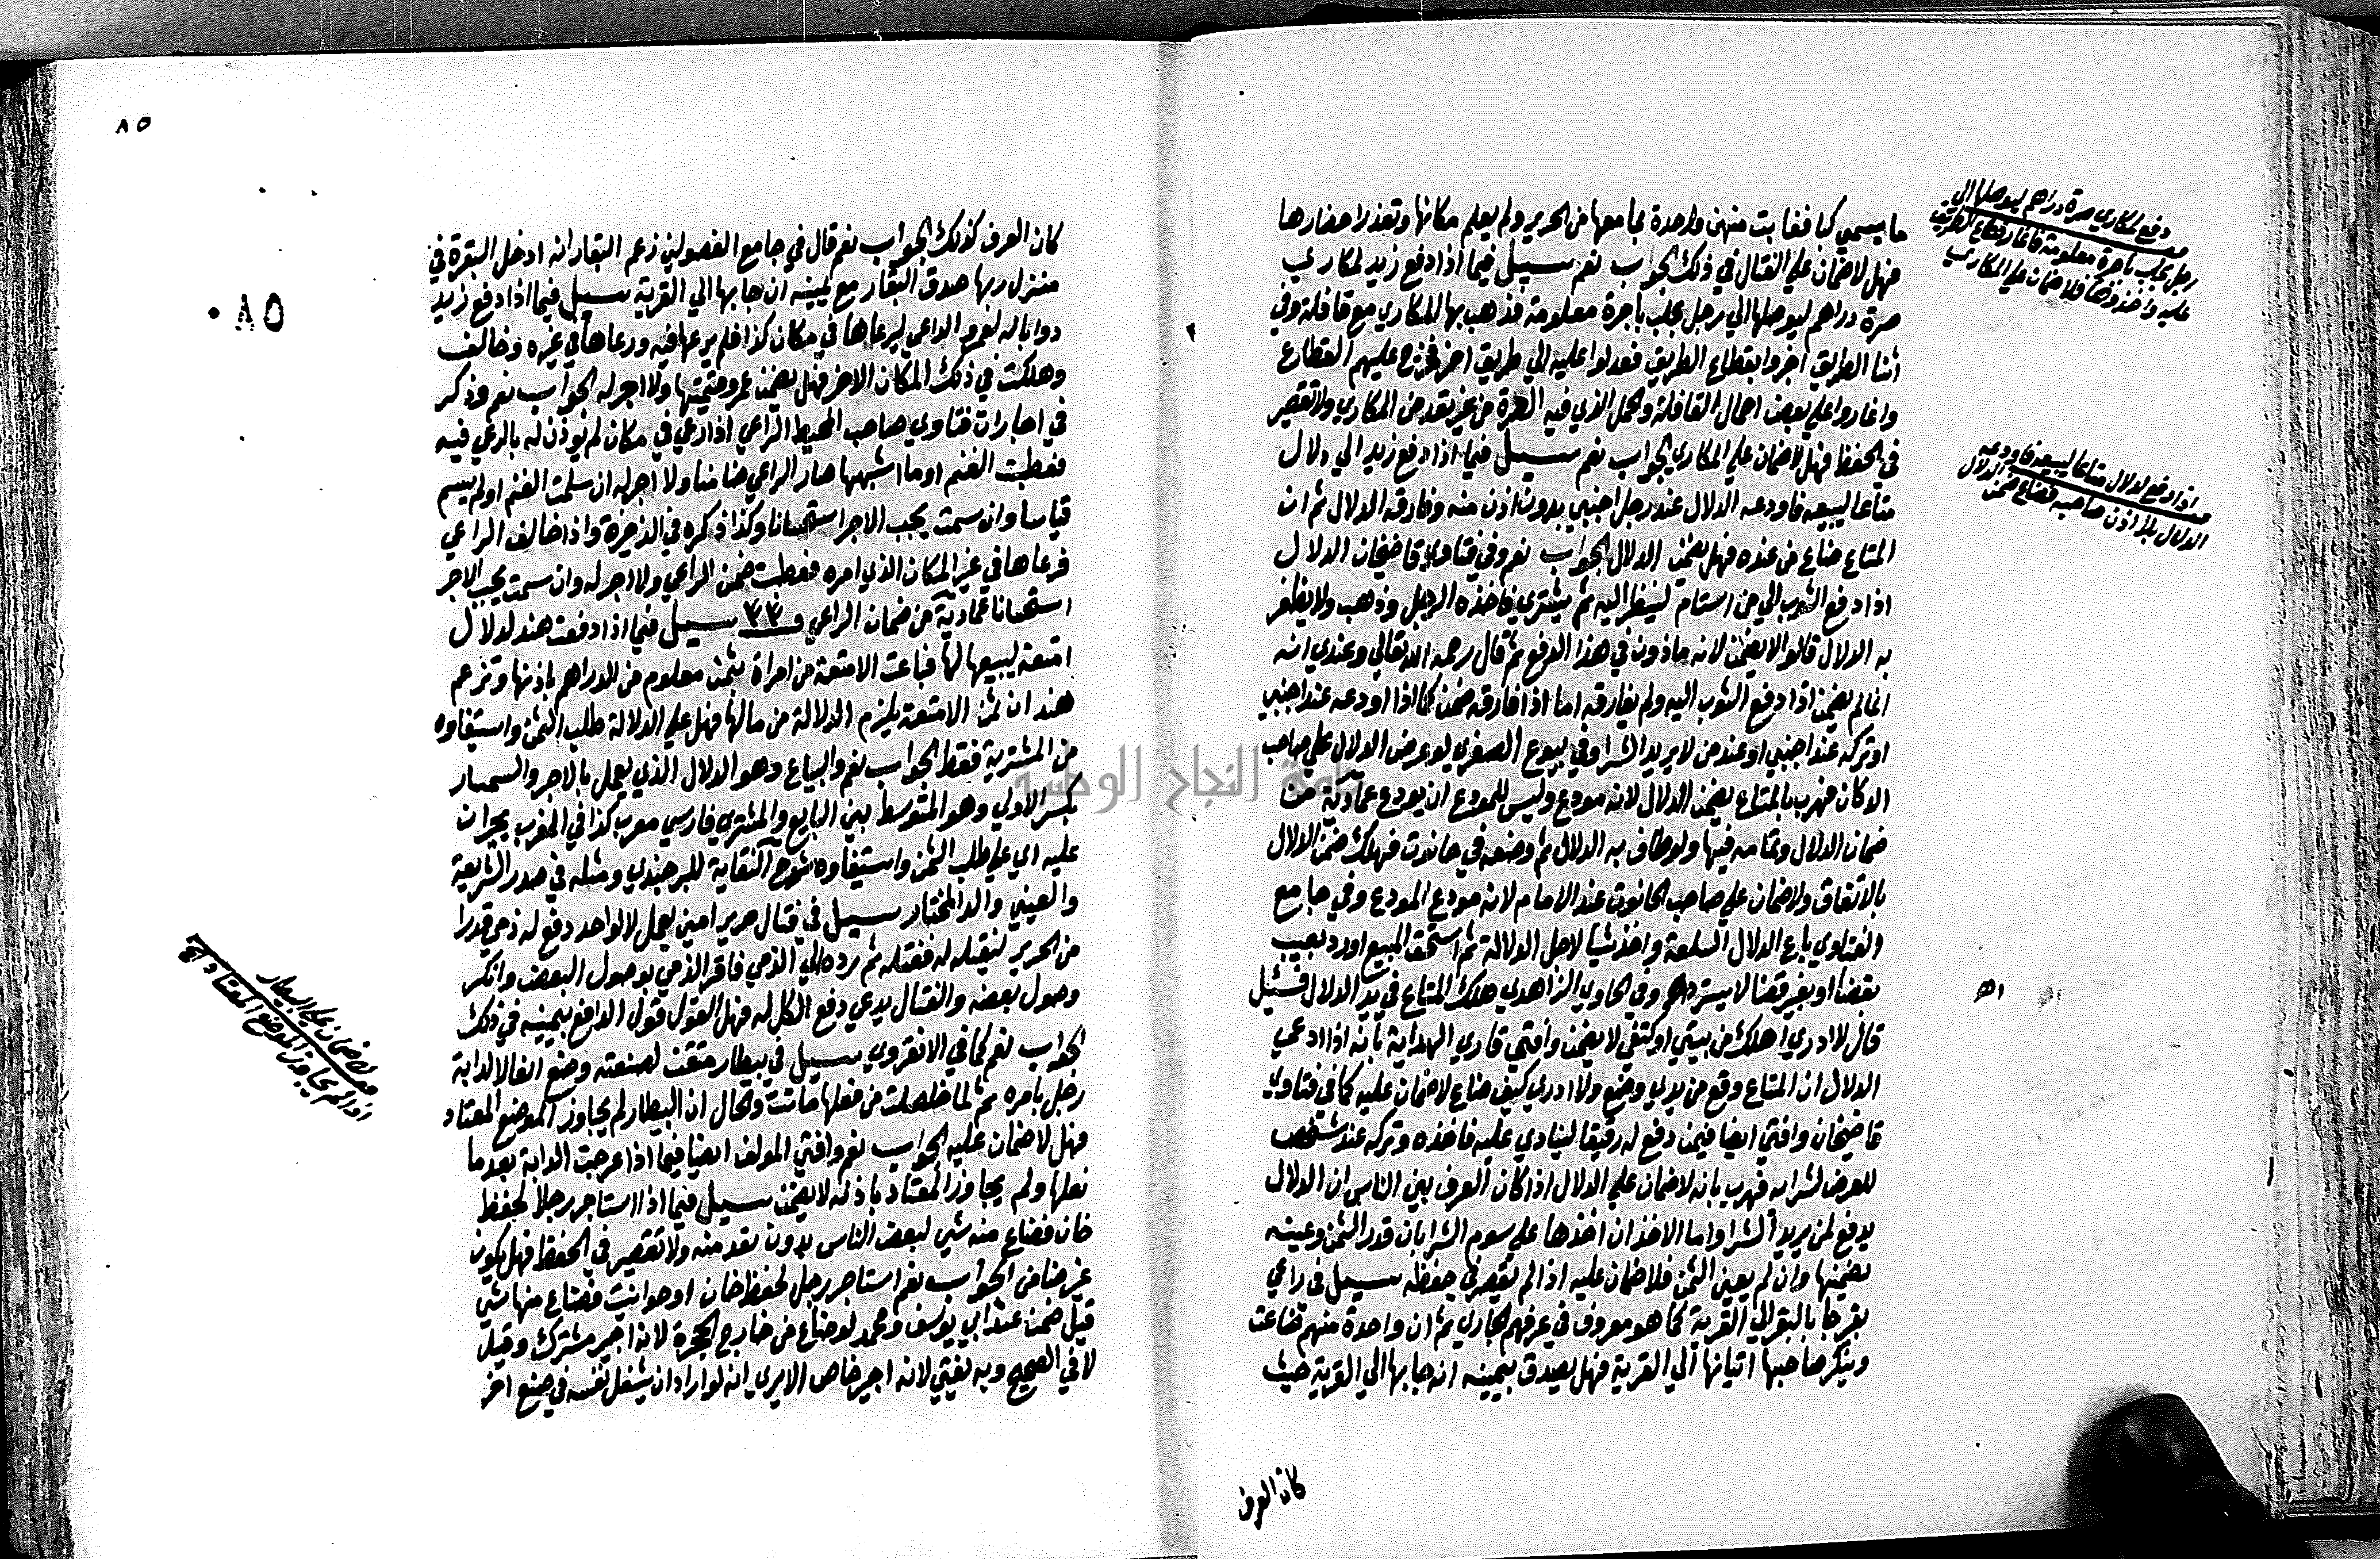 ما يسمى كبا فغابت منهن واحدة بما معها من الحرير ولم يعلم مكانها وتعذر احضارها
فهل لا ضمان علي الفتال في ذلك الجواب نعم سيل فيما اذا دفع زيد لمكاري
صرة دراهم ليوصلها الي رجل بحلب باجرة معلومة فذهب بها المكاري مع قافلة وفي
اثنا الطريق اخبروا بقطاع الطريق فعدلوا عليه الي طريق اخر فخرج عليهم القطاع
واغاروا علي بعض احمال القافلة والحمل الذي فيه الصرة من غير تعد من المكاري ولا تقصير
في الحفظ فهل لا ضمان علي المكاري الجواب نعم سيل فيما اذا دفع زيد الي دلال
متاعا ليبيعه فاودعه الدلال عند رجل اجنبي بدون اذن منه وفارقه الدلال ثم ان
المتاع ضاع من عنده فهل يضمن الدلال الجواب نعم وفي فتاوي قاضيخان الدلال
اذا دفع الثوب الي من استام لينظر اليه ثم يشتري فاخذه الرجل وذهب ولا يظفر
به الدلال قالوا لا يضمن لانه ماذون في هذا الدفع ثم قال رحمه الله تعالي وعندي انه
انما لم يضمن اذا دفع الثوب اليه ولم يفارقه اما اذا فارقه ضمن كما اذا اودعه عند اجنبي
او تركه عند اجنبي او عند من لا يريد الشرا وفي بيوع الصغري لو عرض الدلال علي صاحب
الدكان فهرب بالمتاع يضمن الدلال لانه مودع وليس للمودع ان يودع عمادية من
ضمان الدلال وتمامه فيها ولو طاف به الدلال ثم وضعه في حانوت فهلك ضمن الدلال
بالاتفاق ولا ضمان علي صاحب الحانوت عند الامام لانه مودع المودع وفي جامع
الفتاوي باع الدلال السلعة واخذ شيا لاجل الدلالة ثم استحق المبيع او رد بعيب
بقضا او بغير قضا لا يسترد وفي الحاوي الزاهدي هلك المتاع في يد الدلال فسئل
قال لا ادري اهلك من بيتي او كتفي لا يضمن وافتي قاري الهداية بانه اذا ادعي
الدلال ان المتاع وقع من يدي وضع ولا ادري كيف ضاع لا ضمان عليه كما في فتاوي
قاضيخان وافتي ايضا فيمن دفع له رقيقا لينادي عليه فاخذه وتركه عند شخص
للعرض لشرائه فهرب بانه لا ضمان علي الدلال اذا كان العرف بين الناس ان الدلال
يدفع لمن يريد الشرا واما الاخذ ان اخذها علي سوم الشرا بان قدر الثمن وعينه
يضمنها وان لم يعين الثمن فلا ضمان عليه اذا لم يقصر في حفظه سيل في راعي
بقر جا بالبقر الي القرية كما هو معروف في عرفهم الجاري ثم ان واحدة منهم ضاعت
وينكر صاحبها اتيانها الي القرية فهل يصدق بيمينه انه جا بها الي القرية حيث
كان العرف
دفع لمكاري صرة دراهم ليوصلها الي
رجل بحلب باجرة معلومة فاغار قطاع الطريق
عليه واخذوها فلا ضمان علي المكاري
اذا دفع لدلال متاعا ليبيعه فاودعه
الدلال بلا اذن صاحبه فضاع ضمن الدلال
اهـ
٨٥
٨٥
كان العرف كذلك الجواب نعم قال في جامع الفصولين زعم البقار انه ادخل البقرة في
منزل ربها صدق البقار مع يمينه ان جا بها الي القرية سيل فيما اذا دفع زيد
دوابا له لعمرو الراعي ليرعاها في مكان كذا فلم يرعها فيه ورعاها في غيره وخالف
وهلكت في ذلك المكان الاخر فهل يضمن عمرو قيمتها ولا اجر له الجواب نعم وذكر
في اجارات فتاوي صاحب المحيط الراعي اذا رعي في مكان لم يوذن له بالرعي فيه
فعطبت الغنم او ما اشبهها صار الراعي ضامنا ولا اجر له ان سلمت الغنم او لم تسلم
قياسا وان سلمت يجب الاجر استحسانا وكذا ذكره في الذخيرة واذا خالف الراعي
فرعاها في غير المكان الذي امره فعطبت ضمن الراعي ولا اجر له وان سلمت يجب الاجر
استحسانا عمادية من ضمان الراعي سيل فيما اذا دفعت هند لدلال
امتعة ليبيعها لها فباعت الامتعة من امراة بثمن معلوم من الدراهم باذنها وتزعم
هند ان ثمن الامتعة يلزم الدلالة من مالها فهل علي الدلالة طلب الثمن واستيفاوه
من المشترية فقط الجواب نعم والبياع وهو الدلال الذي يعمل بالاجر والسمسار
بكسر الاولي وهو المتوسط بين البايع والمشتري فارسي معرب كذا في المغرب يجبران
عليه اي علي طلب الثمن واستيفاوه شرح النقاية للبرجندي ومثله في صدر الشريعة
والعيني والدر المختار سيل في فتال حرير امين يعمل لا لواحد دفع له ذمي قدرا
من الحرير ليفتله له ففتله ثم رده الي الذمي فاقر الذمي بوصول البعض وانكر
وصول بعضه والفتال يدعي دفع الكل له فهل القول قول الدافع بيمينه في ذلك
الجواب نعم كما في الانقروي سيل في بيطار متقن لصنعته وضع انعالا لدابة
رجل بامره ثم لما خلصت من فعلها ماتت والحال ان البيطار لم يجاوز الموضع المعتاد
فهل لا ضمان عليه الجواب نعم وافتي المولف ايضا فيما اذا عرجت الدابة بعد ما
نعلها ولم يجاوز المعتاد باذنه لا يضمن سيل فيما اذا استاجر رجلا لحفظ
خان فضاع منه شي لبعض الناس بدون تعد منه ولا تقصير في الحفظ فهل يكون
غير ضامن الجواب نعم استاجر رجل لحفظ خان او حوانيت فضاع منها شي
قيل ضمن عند ابي يوسف ومحمد لو ضاع من خارج الحجرة لانه اجير مشترك وقيل
لا في الصحيح وبه يفتي لانه اجير خاص الا يري انه لو اراد ان يشغل نفسه في صنع اخر
لا ضمان علي البيطار
اذا لم يجاوز الموضع المعتاد
جامعة النجاح الوطنية